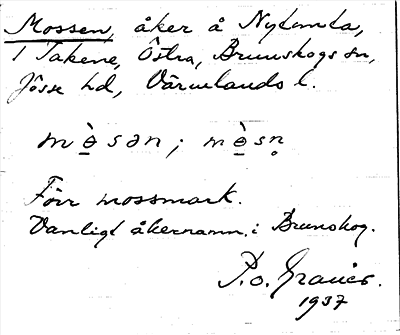 Mossen, åker å Nytomta,
i Takene, Östra, Brunskogs sn,
Jösse hd, Värmlands l.
mò̱sən; mò̱sṇ
Förr mossmark.
Vanligt åkernamn i Brunskog.
P.O. Granér.
1937